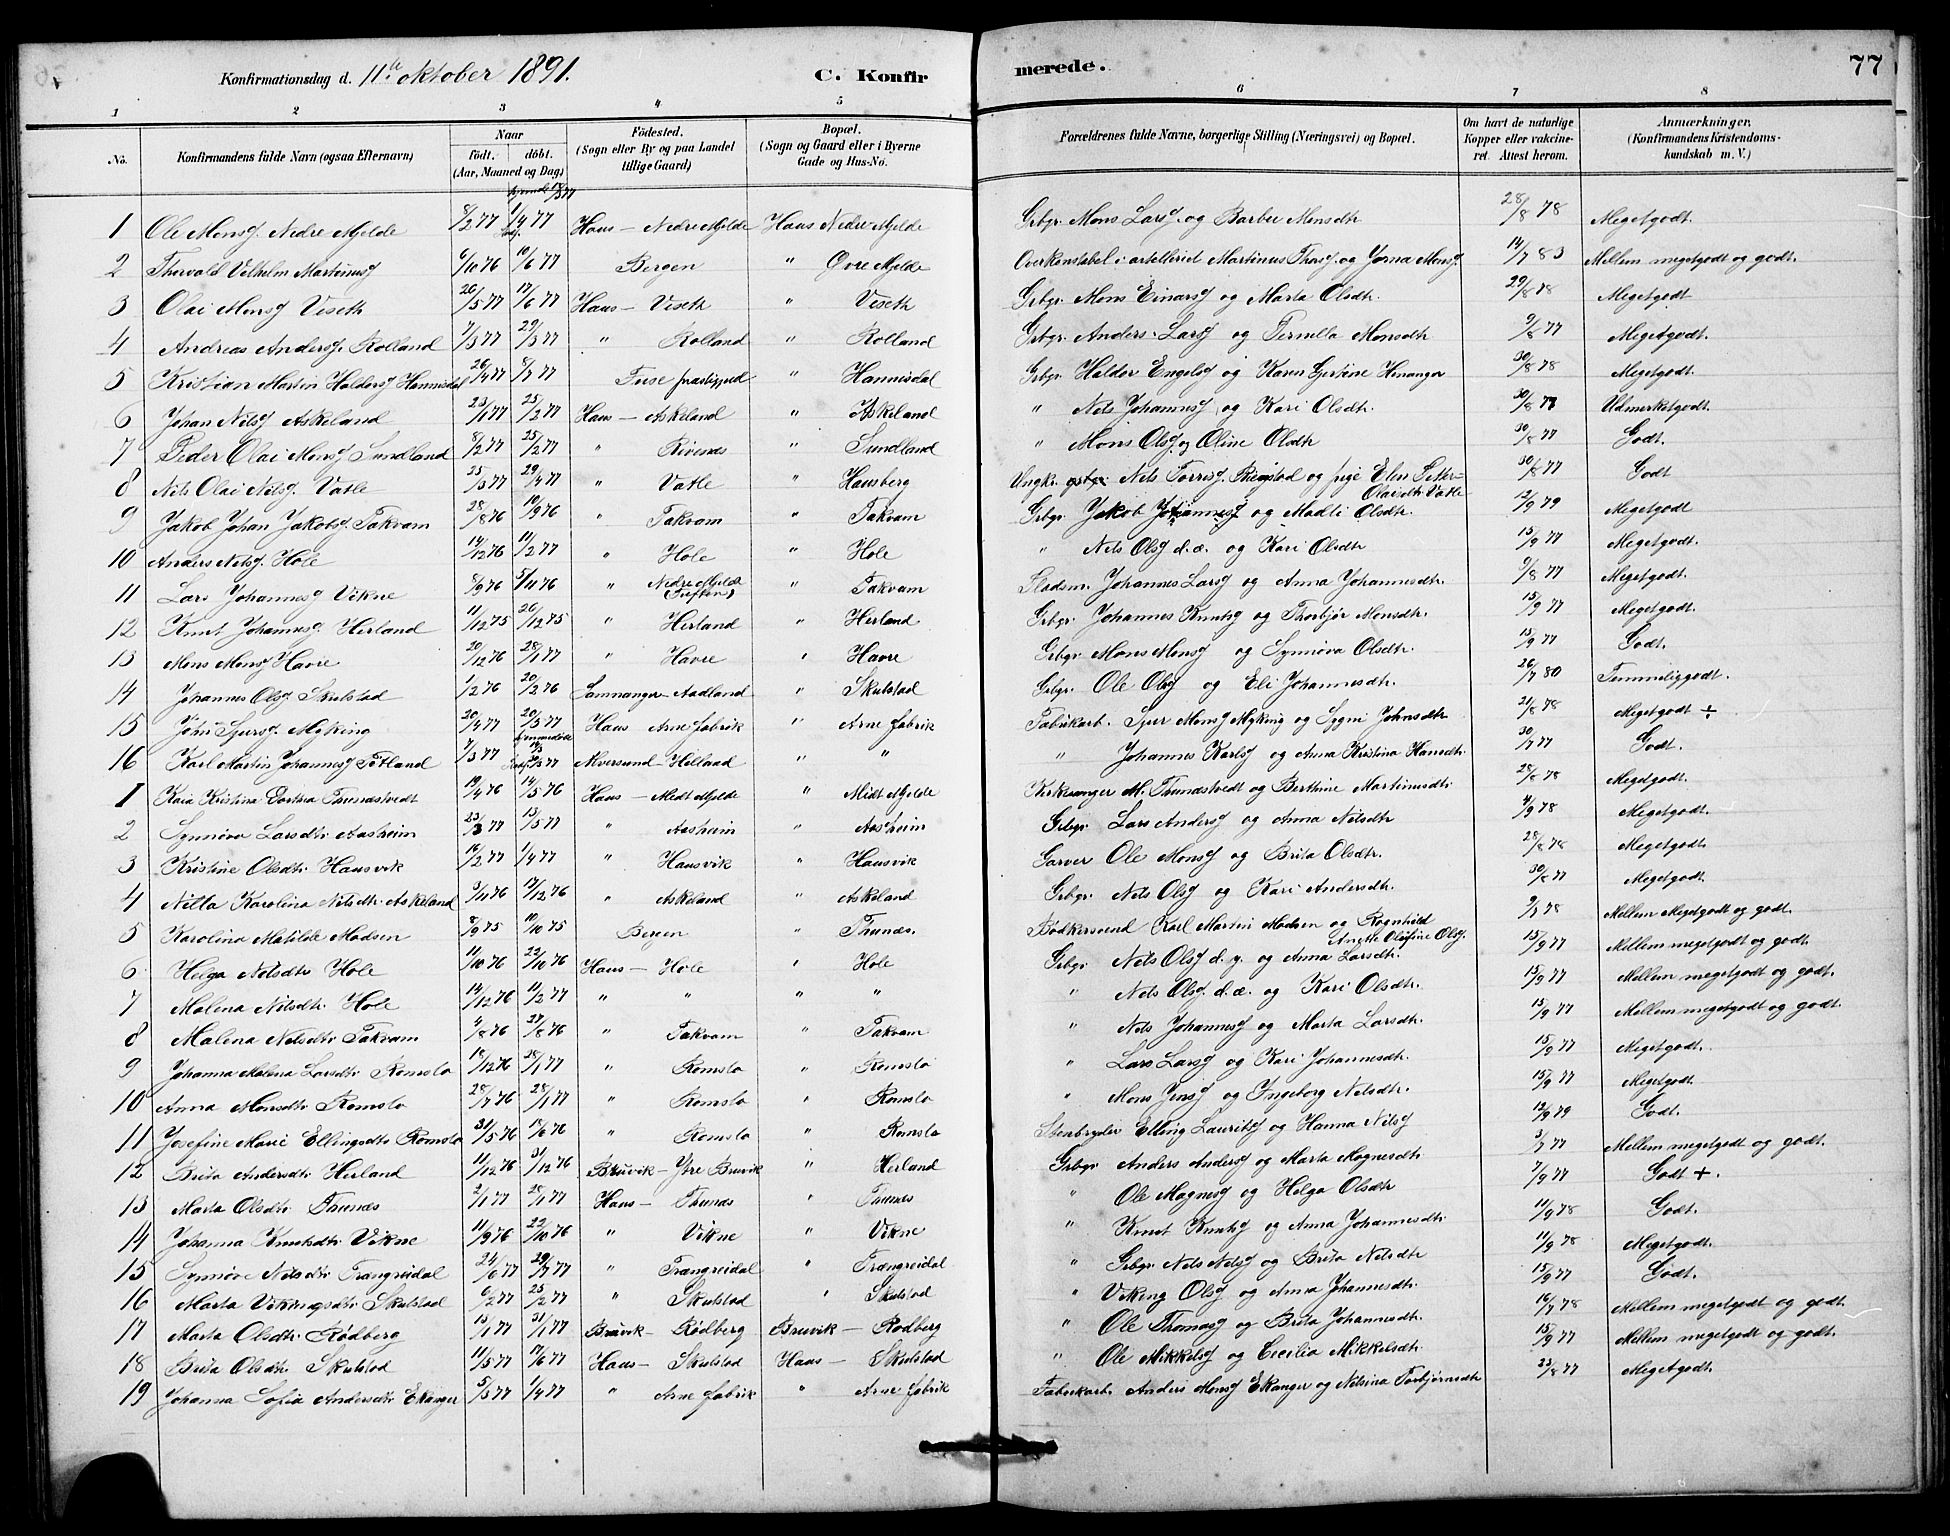 Konfirmationsdag d. 11te oktober 1891. C. Konfir merede. 77
1 2 3 4 5 6 7 8
No. Konfirmandens fulde Navn (ogsaa Efternavn) Naar födt. döbt. (Aar, Maaned og Dag) Födested. (Sogn eller By og paa Landet tillige Gaard) Bopæl. (Sogn og Gaard eller i Byerne Gade og Hus-No. Forældrenes fulde Navne, borgerlige Stilling (Næringsvei) og Bopæl. Om havt de naturlige Kopper eller vakcineret. Attest herom. Anmærkninger. (Konfirmandens Kristendomskundskab m. V.)
1 Ole Monsg. Nedre Mjelde 8/2 77 1/4 77 Haus — Nedre Mjelde Haus Nedre Mjelde Grbgr. Mons Larsg. og Barbu Monsdtr 28/8 78 Megetgodt.
2 Thorvald Vilhelm Martinusg 6/10 76 10/6 77 Bergen " Øvre Mjelde Overkonstabel i artelleriet Martinus Thorsg. og Monsg. 14/7 83 Mellem megetgodt og godt.
3 Olai Monsg Viseth 26/5 77 17/6 77 Haus — Viseth " Viseth Grbgr. Mons Einarsg og Marta Olsdtr. 29/8 78 Megetgodt
4 Andreas Andersg. Rolland 7/3 77 29/3 77 " Rolland " Rolland Grbgr. Anders Larsg og Pernella Monsdtr 9/8 77 Megetgodt.
5 Kristian Martin Haldorsg Hannisdal 26/4 77 8/7 77 Fuse præstegjeld " Hannisdal Grbgr. Haldor Engelsg og Karen Gjertine Henanger 30/8 78 Megetgodt.
6 Johan Nilsg Askeland 23/1 77 25/2 77 Haus — Askeland " Askeland " Nils Johannesg og Kari Olsdtr. 30/8 78 Udmerketgodt.
7 Peder Olai Monsg Sundland 8/2 77 25/2 77 " Rivenes " Sundland " Mons Olsg. og Oline Olsdtr 30/8 77 Godt.
8 Nils Olai Nilsg. Vatle 25/3 77 29/4 77 " Vatle " Hausberg Ungkr. Nils Torrisg. Ringstad og pige Elen Petter-Olaisdtr Vatle 30/8 77 Godt
9 Jakob Johan Jakobsg. Takvam 28/8 76 10/9 76 " Takvam " Takvam Grbgr. Jakob Johannesg og Madli Olsdtr. 12/9 79 Megetgodt
10 Anders Nilsg. Hole 14/12 76 11/2 77 " Hole " Hole " Nils Olsg d.æ. og Kari Olsdtr 15/9 77 Megetgodt.
11 Lars Johannesg Vikne 8/9 76 5/11 76 " Nedre Mjelde (Tuften) " Takvam Pladsm. Johannes Larsg og Anna Johannesdtr. 9/8 77 Megetgodt.
12 Knut Johannesg. Herland 11/12 75 26/12 75 " Herland " Herland Grbgr. Johannes Knutsg og Thorbjør Monsdtr. 15/9 77 Megetgodt.
13 Mons Monsg Havre 20/12 76 28/1 77 " Havre " Havre Grbgr. Mons Monsg og Synnøva Olsdtr. 15/9 77 Godt.
14 Johannes Olsg. Skulstad 1/2 76 20/2 76 Samnanger — Aadland " Skulstad Grbgr. Ole Olsg og Eli Johannesdtr. 26/7 80 Temmeliggodt.
15 John Sjursg. Myking 20/4 77 20/5 77 Haus Arne fabrik " Arne fabrik Fabrikarb. Sjur Monsg Myking og Sygni Johnsdtr 21/8 78 Megetgodt ÷
16 Karl Martin Johannesg Totland 7/3 77 Alversund — Helland " " " Johannes Karlsg og Anna Kristina Hansdtr. 30/7 77 Godt.
1 Kaia Kristina Dorthea Thunestvedt 19/4 76 14/5 76 Haus — Midt Mjelde " Midt Mjelde Kirkesanger M. Thunestvedt og Berthine Martinusdtr 28/8 78 Megetgodt.
2 Synnøve Larsdtr Aasheim 23/3 77 13/5 77 " Aasheim " Aasheim Grbgr. Lars Andersg og Anna Nilsdtr 4/9 78 Megetgodt.
3 Kristine Olsdtr Hausvik 16/2 77 1/4 77 " Hausvik " Hausvik Garver Ole Monsg og Brita Olsdtr. 28/8 78 Megetgodt.
4 Nilla Karolina Nilsdtr Askeland 3/11 76 17/12 76 " Askeland " Askeland Grbgr. Nils Olsg og Kari Andersdtr. 30/8 77 Megetgodt.
5 Karolina Matilde Madsen 8/9 75 10/10 75 Bergen " Thunæs. Bødkersvend Karl Martin Madsen og Rognhild Anette Olufine Olsg. 9/7 78 Mellem Megetgodt og godt.
6 Helga Nilsdtr Hole 11/10 76 22/10 76 Haus — Hole " Hole Grbgr. Nils Olsg d. y. og Anna Larsdtr. 15/9 77 Mellem megetgodt og godt.
7 Malena Nilsdtr Hole 14/12 76 11/2 77 " " " " " Nils Olsg. d. æ. og Kari Olsdtr. 15/9 77 Mellem megetgodt og godt.
8 Malena Nilsdtr Takvam 4/8 76 27/8 76 " Takvam " Takvam " Nils Johannesg og Marta Larsdtr. 15/9 77 Mellem megetgodt og godt.
9 Johanna Malena Larsdtr Romslo 18/12 76 28/1 77 " Romslo " Romslo " Lars Larsg og Kari Johannesdtr. 15/9 77 Megetgodt.
10 Anna Monsdtr Romslo 28/7 76 28/1 77 " Romslo " Romslo " Mons Jensg og Ingeborg Nilsdtr. 15/9 77 Megetgodt.
11 Josefine Marie Ellingsdtr Romslo 31/5 76 17/6 76 " Romslo " Romslo Stenbryder Elling Lauritsg og Hanna Nilsg 12/9 79 Godt.
12 Brita Andersdtr Herland 11/12 76 31/12 76 Bruvik — Ytre Bruvik " Herland Grbgr. Anders Andersg og Marta Magnesdtr 3/7 77 Mellem megetgodt og godt.
13 Marta Olsdtr Thunæs 2/1 77 28/1 77 Haus — Thunæs " Thunes " Ole Magnesg og Helga Olsdtr 7/9 77 Godt +.
14 Johanna Knutsdtr Vikne 11/9 76 22/10 76 " Vikne " Vikne " Knut Knutsg og Anna Johannesdtr 11/9 78 Godt.
15 Synnøve Nilsdtr Trangreidal 24/6 77 29/7 77 " Trangreidal " Trængreidal " Grbgr. Nils Nilsg og Brita Nilsdtr 11/9 78 Megetgodt.
16 Marta Vikingsdtr Skulstad 6/2 77 25/2 77 " Skulstad " Skulstad " Viking Olsg og Anna Johannesdtr. 15/9 77 Godt.
17 Marta Olsdtr Rødberg 13/1 77 31/1 77 Bruvik — Rødberg Bruvik — Rødberg " Ole Thomasg og Brita Johannesdtr. 16/7 78 Mellem megetgodt og godt.
18 Brita Olsdtr Skulstad 11/5 77 17/6 77 Haus — Skulstad Haus — Skulstad " Ole Mikkelsg og Cecilia Mikkelsdtr. 15/9 77 Mellem megetgodt og godt.
19 Johanna Sofia Andersdtr Ekanger 5/3 77 1/4 77 " Arne fabrik " Arne fabrik Fabrikarb. Anders Monsg Ekanger og Nilsina Torbjørnsdtr 23/8 77 Megetgodt.